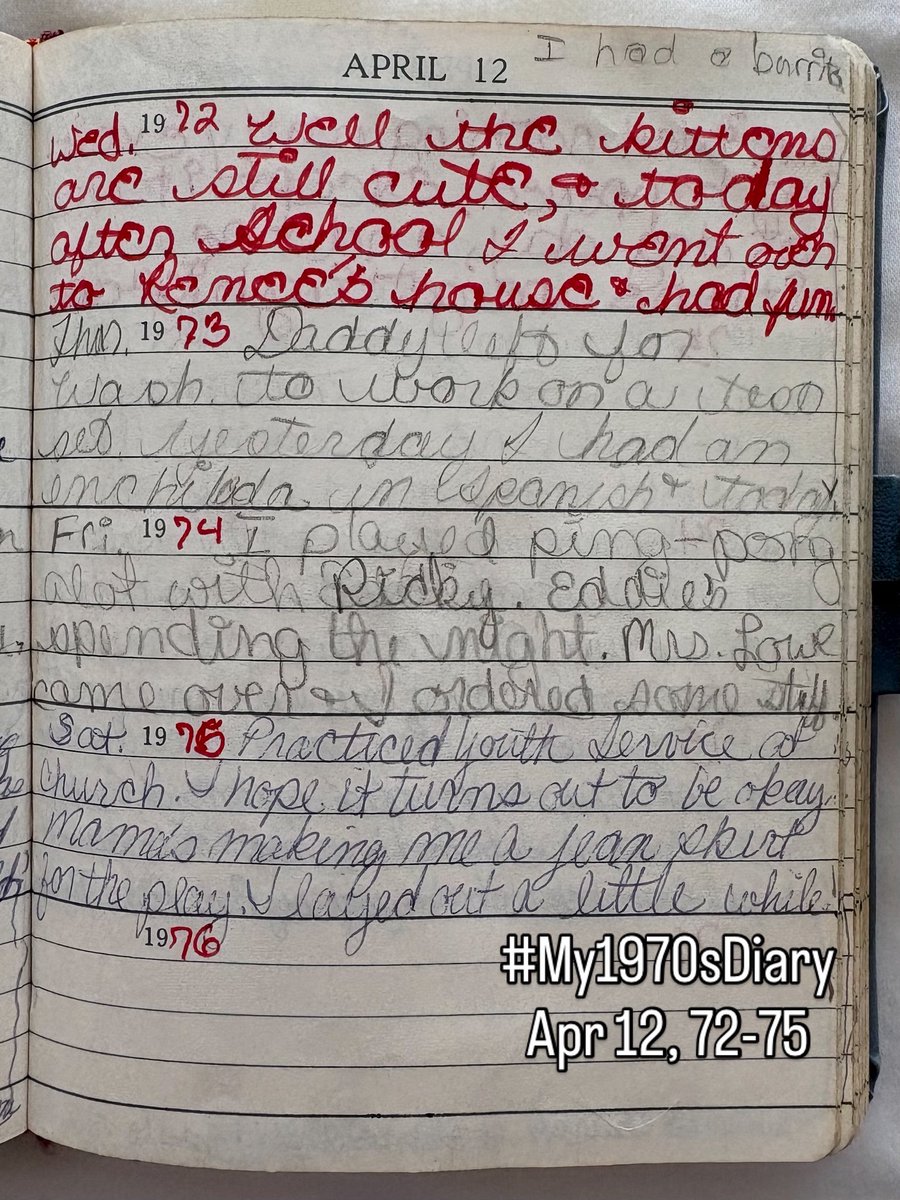 I had a burrito
APRIL 12
Wed. 1972 Well the kittens
are still cute, & today
after School I went over
to Renee's house & had fun.
Thurs. 1973 Daddy left for
Wash. to work on a
set. Yesterday I had an
enchilada in Spanish & today
Fri. 1974 I played ping-pong
alot with Ricky. Eddie's
spending the night. Mrs. Lowe
came over & I ordered some stuff
Sat. 1975 Practiced Youth Service at
Church. I hope it turns out to be okay.
Mama's making me a jean skirt
for the play. I layed out a little while.
1976
#My1970sDiary
Apr 12, 72-75